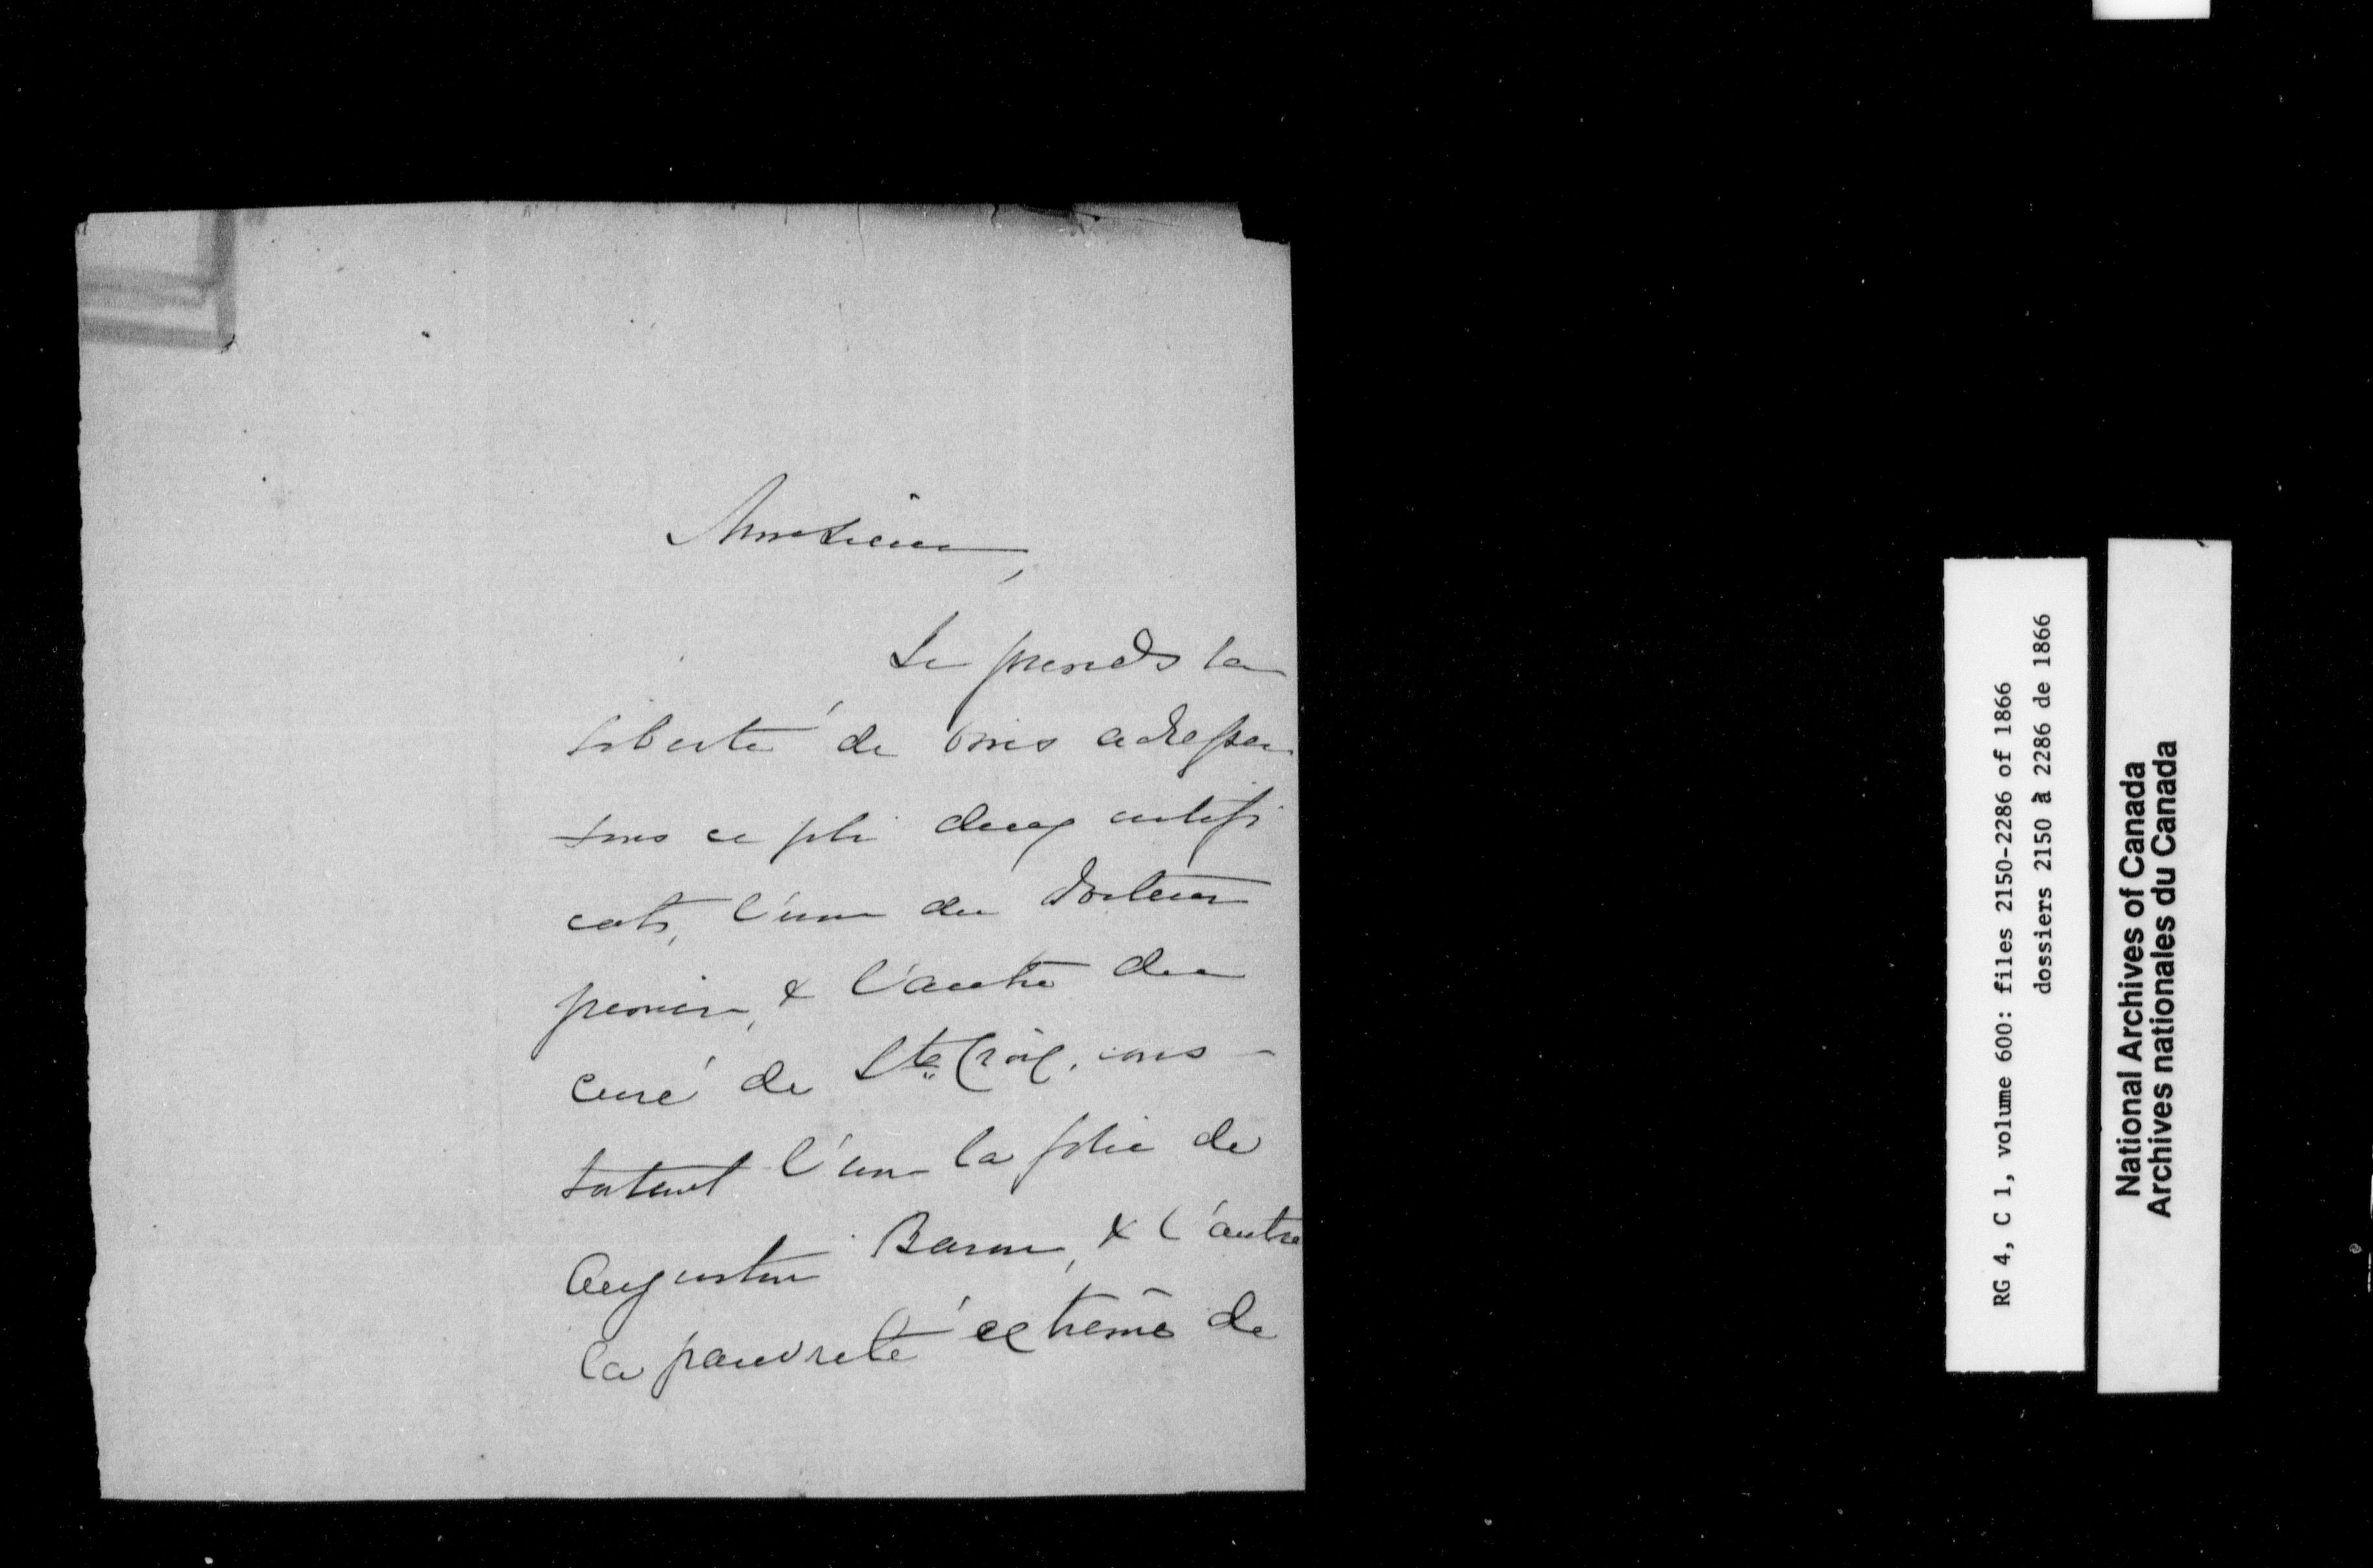 Monsieur,
Je prends la
liberté de vous adresser
sous ce pli deux certifi
cats, l'un du docteur
& l'autre du
curé de Ste Croix, cons-
tatant l'un la folie de
Augustin Baron, & l'autre
la pauvreté extrême de
RG 4, C 1, volume 600: files 2150-2286 of 1866
dossiers 2150 à 2286 de 1866
National Archives of Canada
Archives nationales du Canada